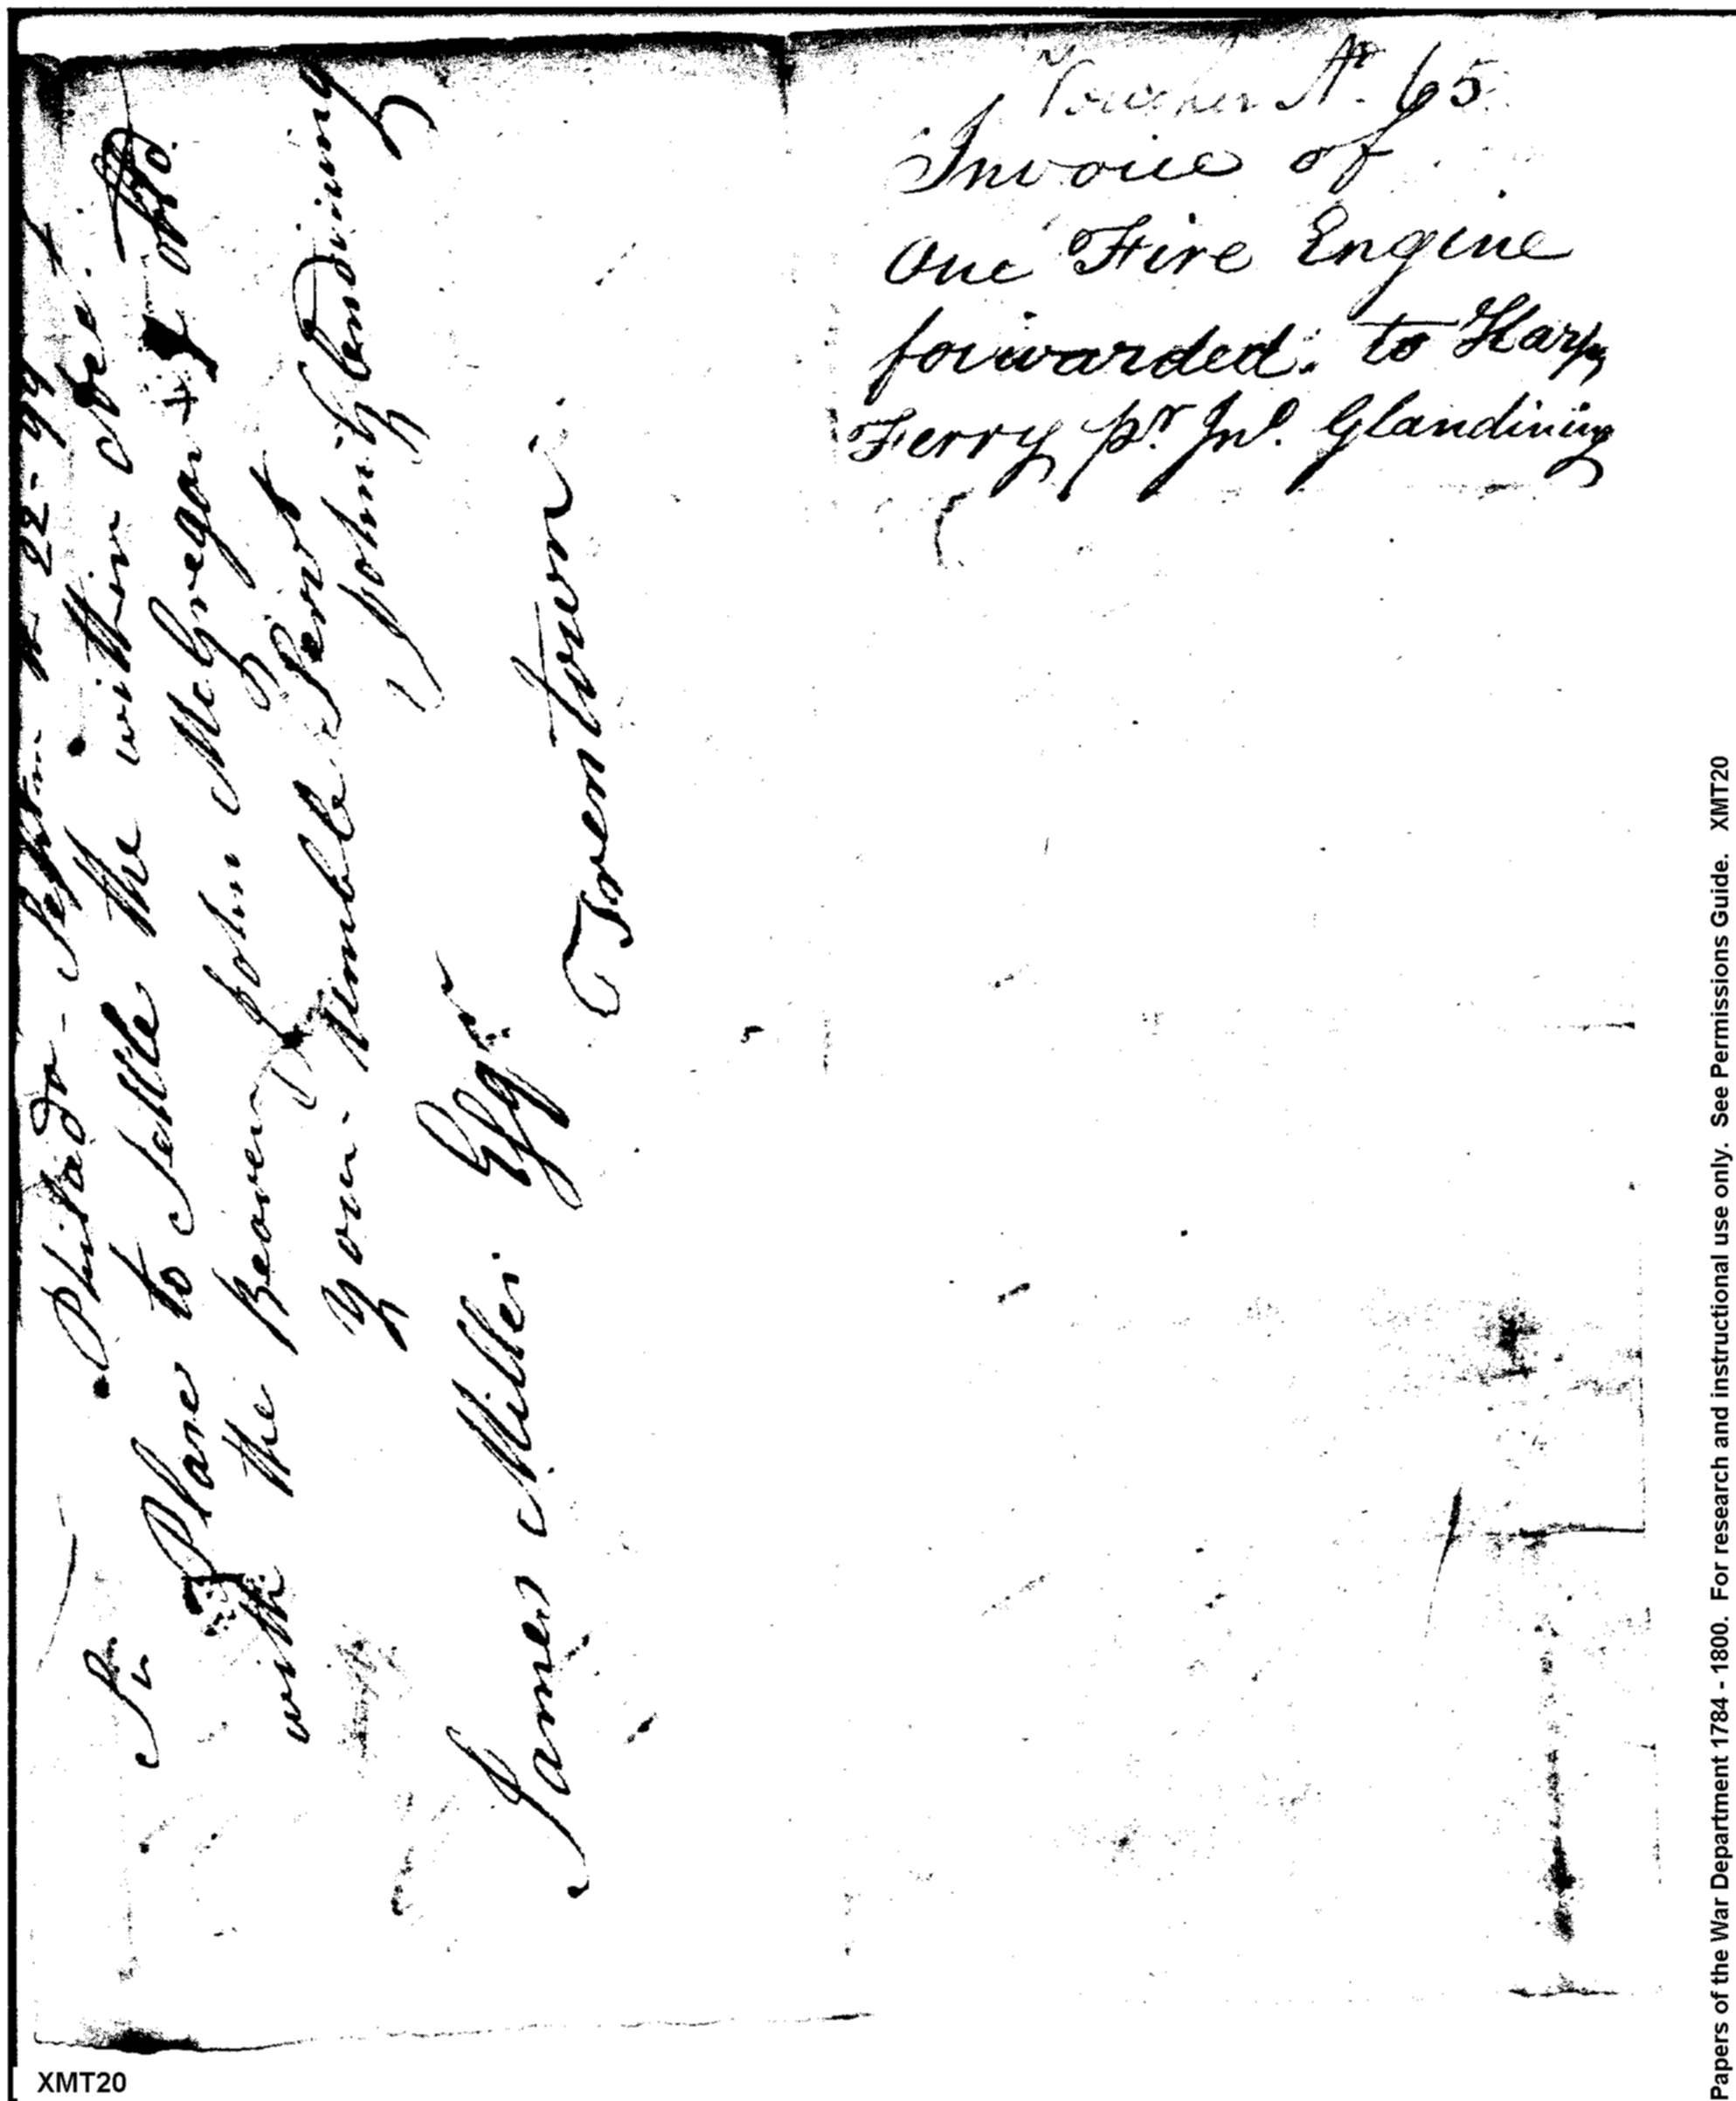 Voucher No. 65
Invoice of
One Fire Engine
forwarded. to Harps
Ferry pr. Jno. Glandining
Philada - Septem 22 - 99
Sir
Please to Settle the within
with the Bearer John McGregar &
Your Humble Servt
John Glendining
James Miller Esqr
Trentown
XMT20
Papers of the War Department 1784 - 1800. For research and instructional use only. See Permissions Guide. XMT20